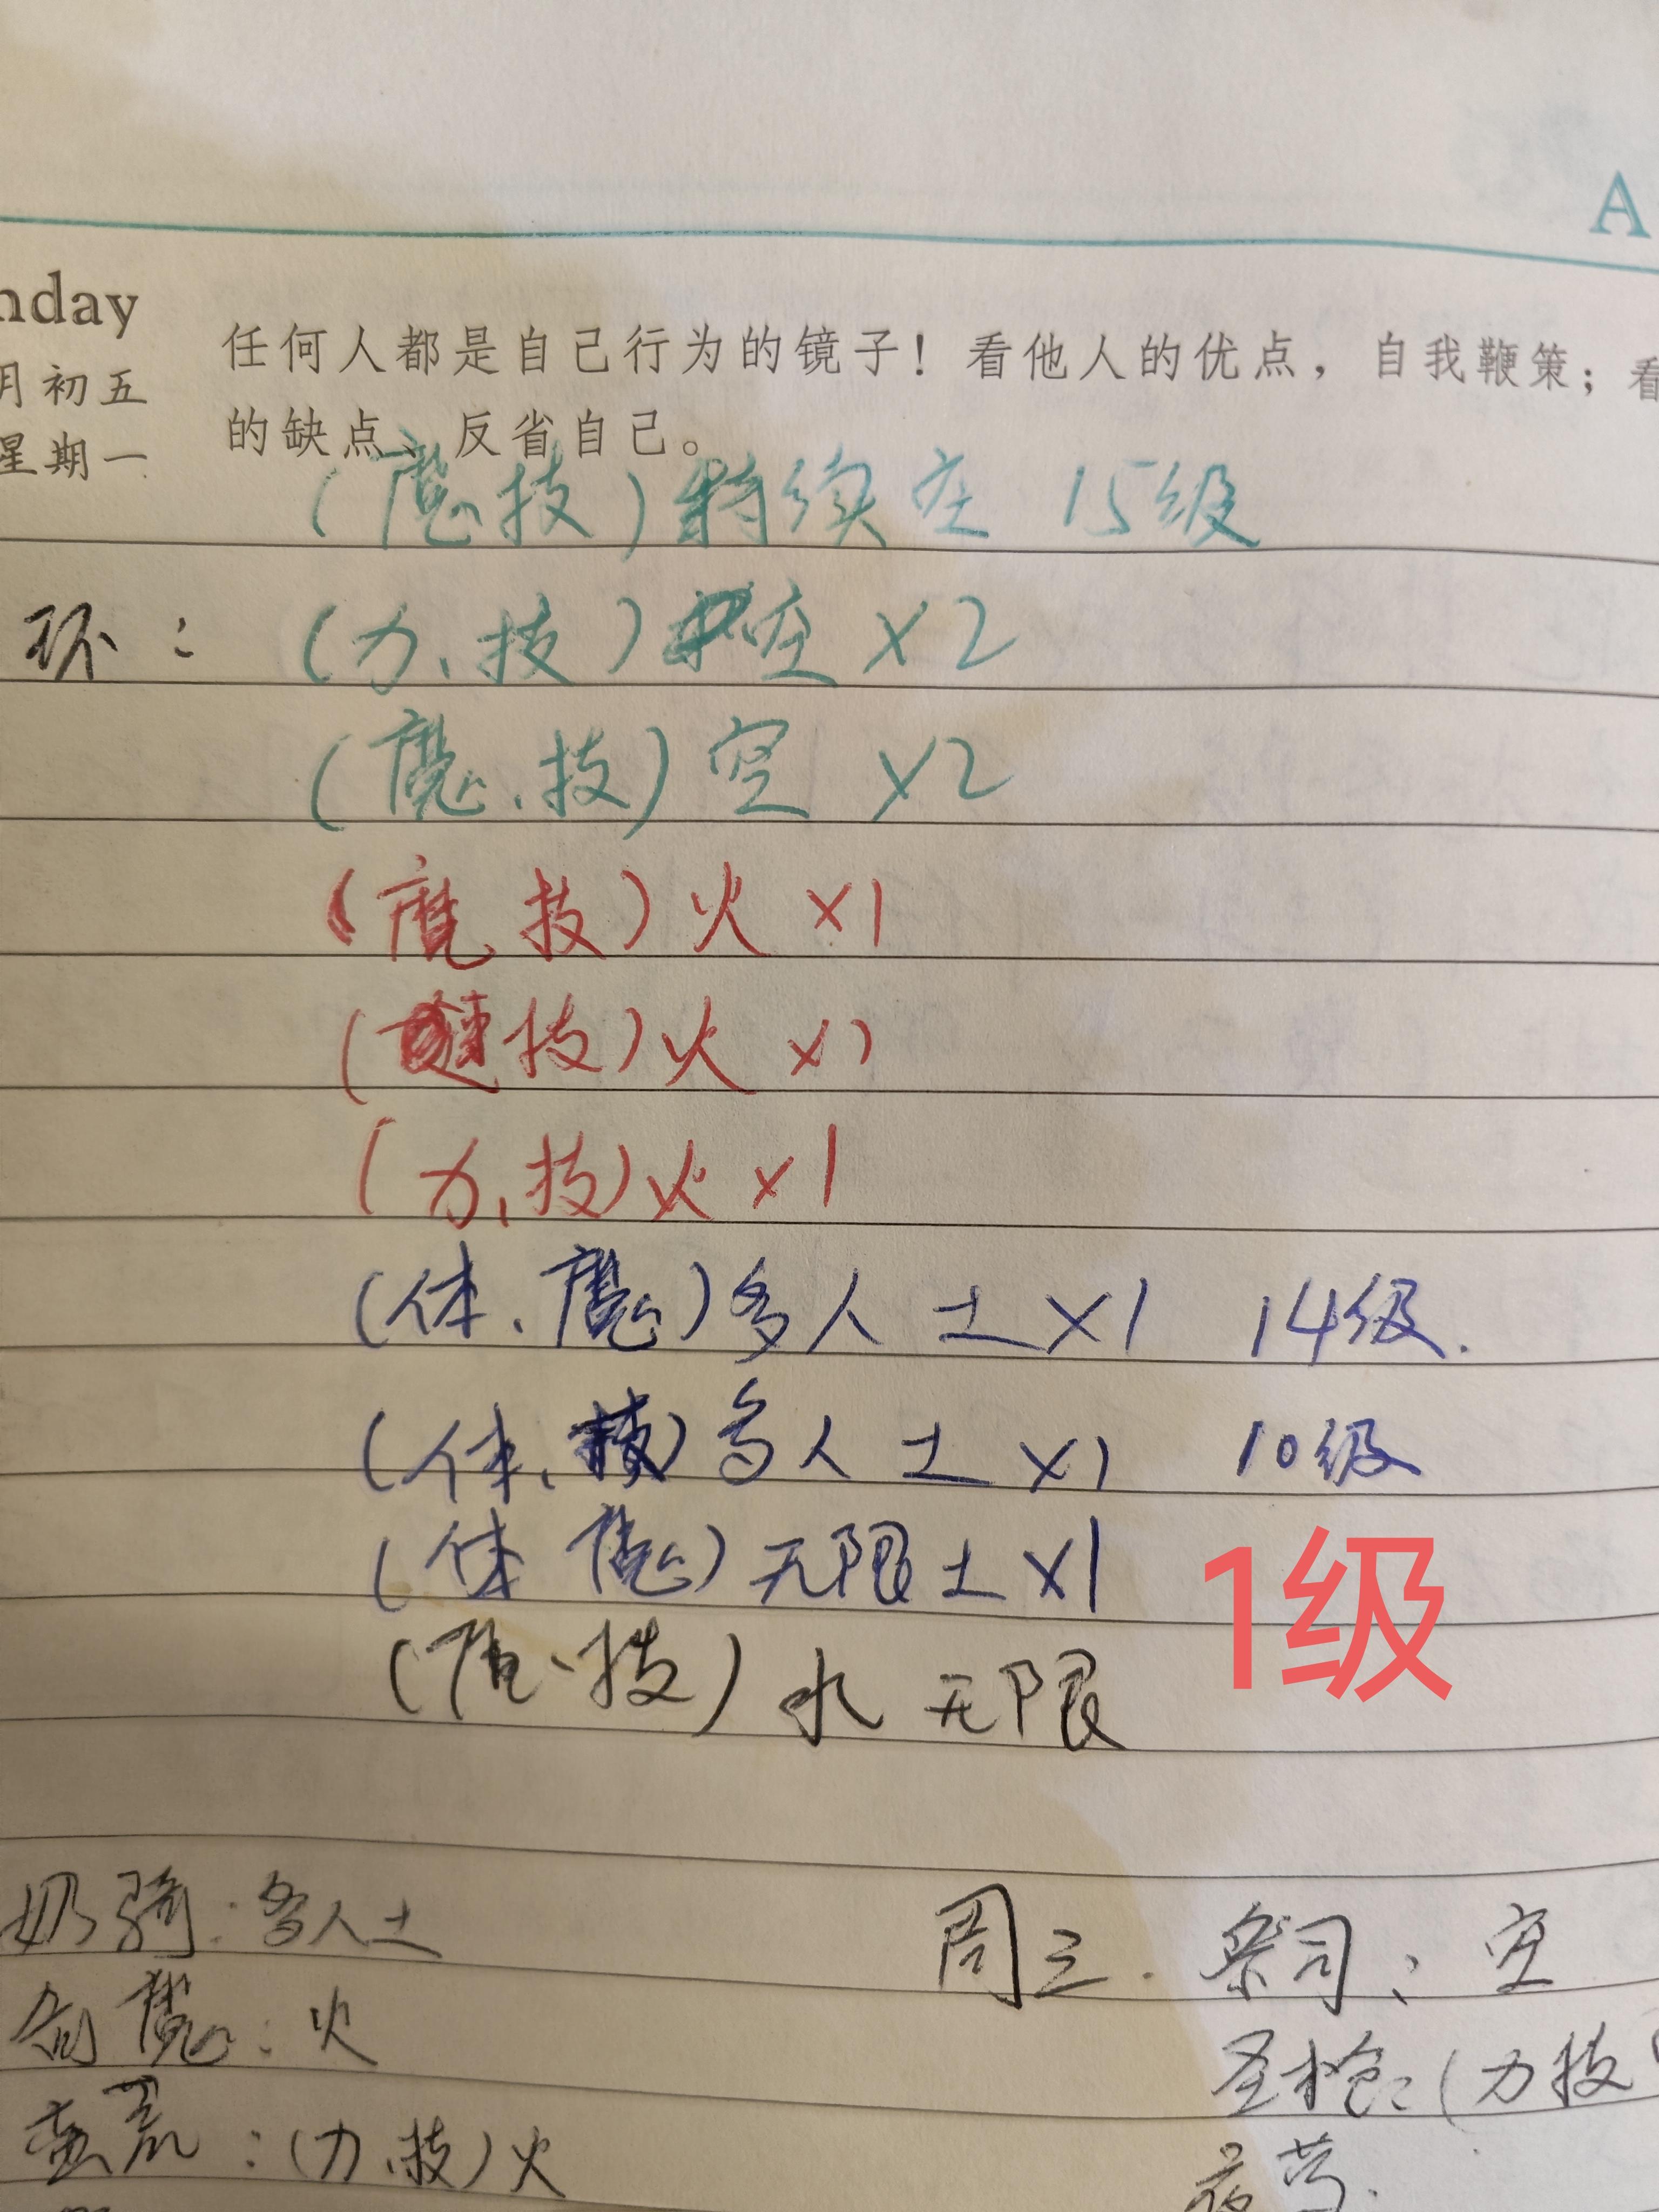 A
nday
月初五
星期一
任何人都是自己行为的镜子！看他人的优点，自我鞭策；看
的缺点、反省自己。
(魔技)持续空 15级
环：(力、技)空 ×2
(魔、技)空 ×2
(魔技)火 ×1
技)火 ×1
(力、技)火×1
(体、魔)多人 土×1 14级.
(体、技)多人 土 ×1 10级
(体 魔)无限土×1
1级
(魔、技)水 无限
奶骑：多人土
：火
蛮荒：(力、技)火
周三. 祭司：空
圣枪：(力技